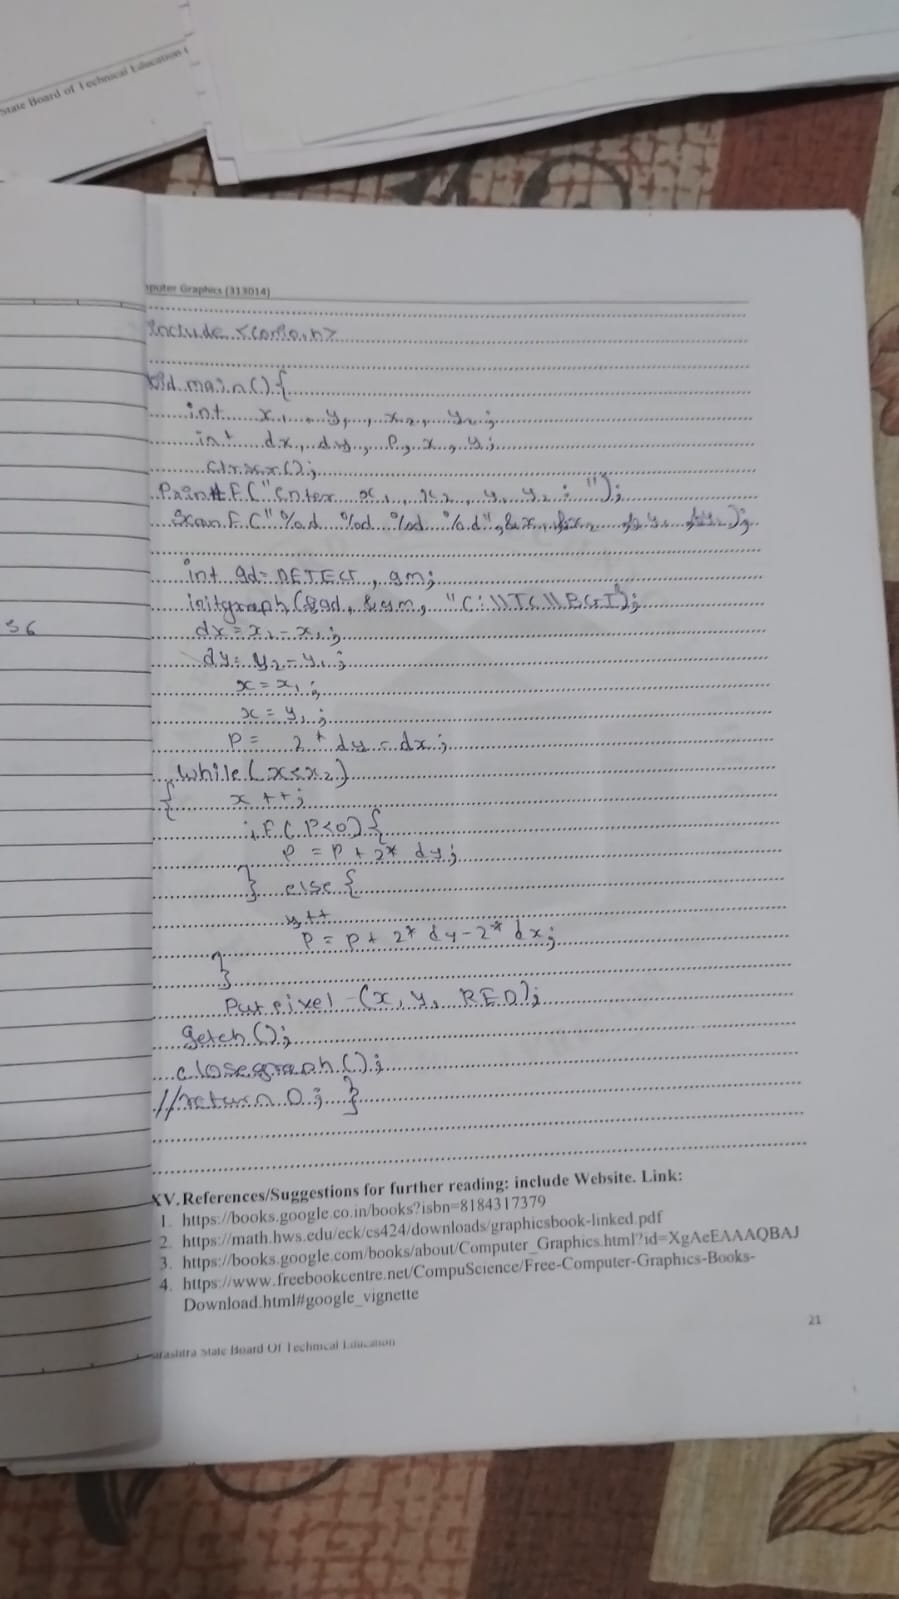 State Board of Technical Education
puter Graphics (313014)
include <conio.h>
void main() {
int x1, y1, x2, y2;
int dx, dy, p, x, y;
clrscr();
Printf("Enter x1, x2, y1 y2 : ");
Scanf("%d %d %d %d", &x1, &x2, &y1, &y2);
int gd = DETECT, gm;
initgraph(&gd, &gm, "C:\\TC\\BGI");
36
dx = x2 - x1;
dy = y2 - y1;
x = x1;
x = y1;
P = 2 * dy - dx;
while (x < x2)
{ x++;
if (P<0) {
P = P + 2* dy;
} else {
y++
P = P + 2* dy - 2* dx;
}
Putpixel (x, y, RED);
getch();
closegraph();
//return 0; }
XV. References/Suggestions for further reading: include Website. Link:
1. https://books.google.co.in/books?isbn=8184317379
2. https://math.hws.edu/eck/cs424/downloads/graphicsbook-linked.pdf
3. https://books.google.com/books/about/Computer_Graphics.html?id=XgAeEAAAQBAJ
4. https://www.freebookcentre.net/CompuScience/Free-Computer-Graphics-Books-
Download.html#google_vignette
21
arashtra State Board Of Technical Education